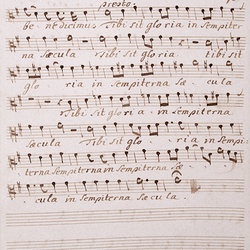 presto.
be ne dicimus tibi sit glo ria in sempiter
na sæcula tibi sit gloria tibi sit
glo ria in sempiterna sæ cula
tibi sit gloria in sempiterna
sæcula tibi sit glo ria in sempi
terna sempiterna in sempiterna sæ
cula in sempiterna sæcula.